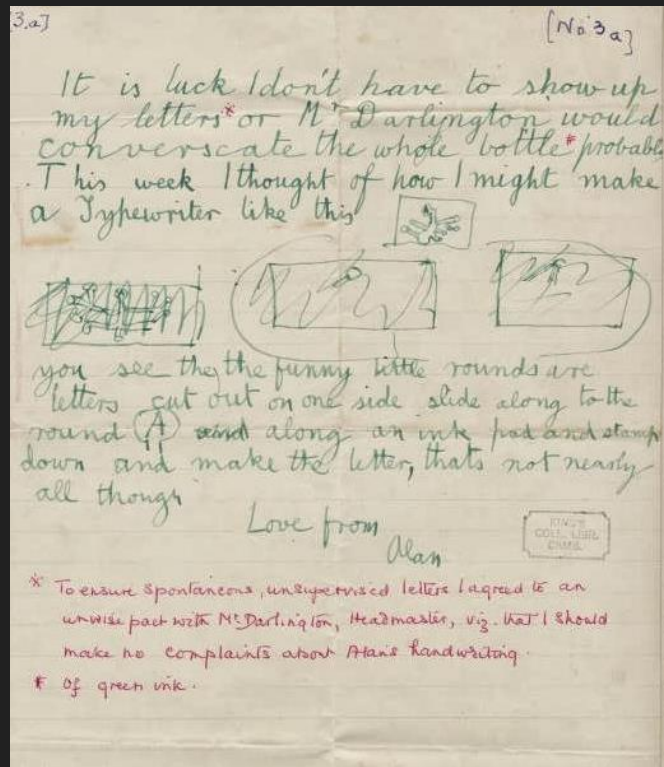 3.a]
[No 3a]
It is luck I don't have to show up
my letters* or Mr Darlington would
converscate the whole bottle* probabl
. This week I thought of how I might make
a Typewriter like this
you see the the funny little rounds are
letters cut out on one side slide along to the
round A along an ink pad and stamp
down and make the letter, thats not nearly
all though
Love from
Alan
KING'S
COLL. LIBR.
CAMB.
* To ensure spontaneous, unsupervised letters I agreed to an
unwise pact with Mr Darlington, Headmaster, viz. that I should
make no complaints about Alan's handwriting.
* Of green ink.